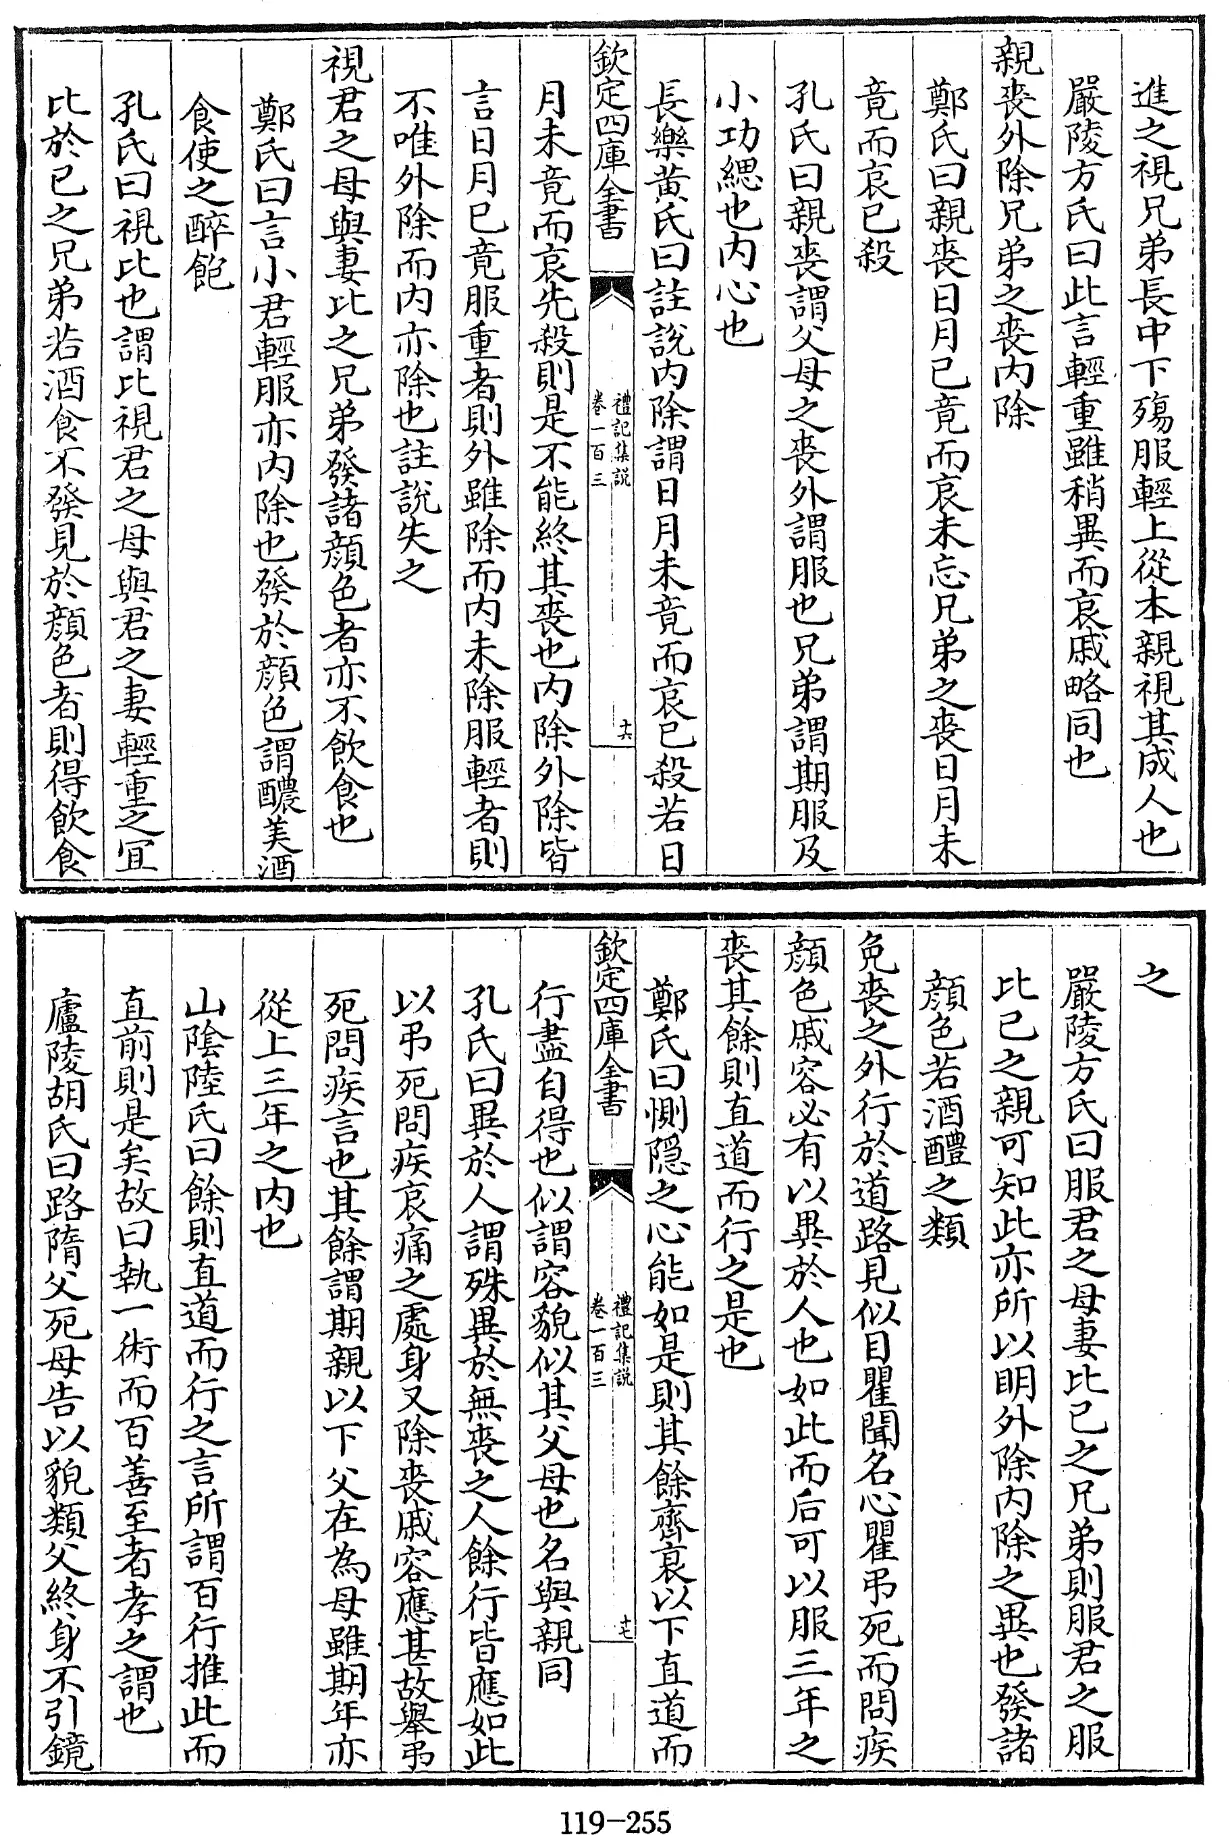 進之視兄弟長中下殤服輕上從本親視其成人也
嚴陵方氏曰此言輕重雖稍異而哀戚略同也
親喪外除兄弟之喪内除
鄭氏曰親喪日月已竟而哀未忘兄弟之喪日月未
竟而哀已殺
孔氏曰親喪謂父母之喪外謂服也兄弟謂期服及
小功緦也内心也
長樂黄氏曰註説内除謂日月未竟而哀已殺若日
欽定四庫全書
禮記集説
卷一百三
十六
月未竟而哀先殺則是不能終其喪也内除外除皆
言日月已竟服重者則外雖除而内未除服輕者則
不唯外除而内亦除也註説失之
視君之母與妻比之兄弟發諸顔色者亦不飲食也
鄭氏曰言小君輕服亦内除也發於顔色謂醲美酒
食使之醉飽
孔氏曰視比也謂比視君之母與君之妻輕重之宜
比於已之兄弟若酒食不發見於顔色者則得飲食
之
嚴陵方氏曰服君之母妻比已之兄弟則服君之服
比已之親可知此亦所以明外除内除之異也發諸
顔色若酒醴之類
免喪之外行於道路見似目瞿聞名心瞿弔死而問疾
顔色戚容必有以異於人也如此而后可以服三年之
喪其餘則直道而行之是也
鄭氏曰惻隠之心能如是則其餘齊衰以下直道而
欽定四庫全書
禮記集説
卷一百三
十七
行盡自得也似謂容貌似其父母也名與親同
孔氏曰異於人謂殊異於無喪之人餘行皆應如此
以弔死問疾哀痛之處身又除喪戚容應甚故舉弔
死問疾言也其餘謂期親以下父在為母雖期年亦
從上三年之内也
山陰陸氏曰餘則直道而行之言所謂百行推此而
直前則是矣故曰執一術而百善至者孝之謂也
廬陵胡氏曰路隋父死母告以貌類父終身不引鏡
119-255